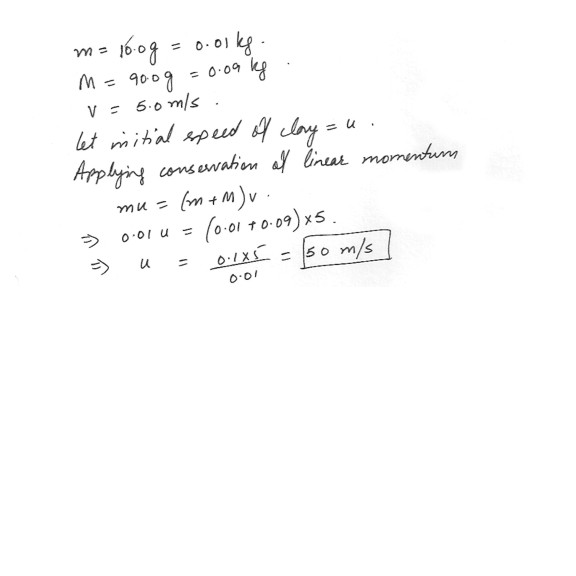 m = 10.0g = 0.01 kg.
M = 90.0g = 0.09 kg.
v = 5.0 m/s.
Let initial speed of clay = u.
Applying conservation of linear momentum
mu = (m+M)v.
⇒ 0.01 u = (0.01 + 0.09) × 5.
⇒ u = 0.1×5/0.01 = 50 m/s